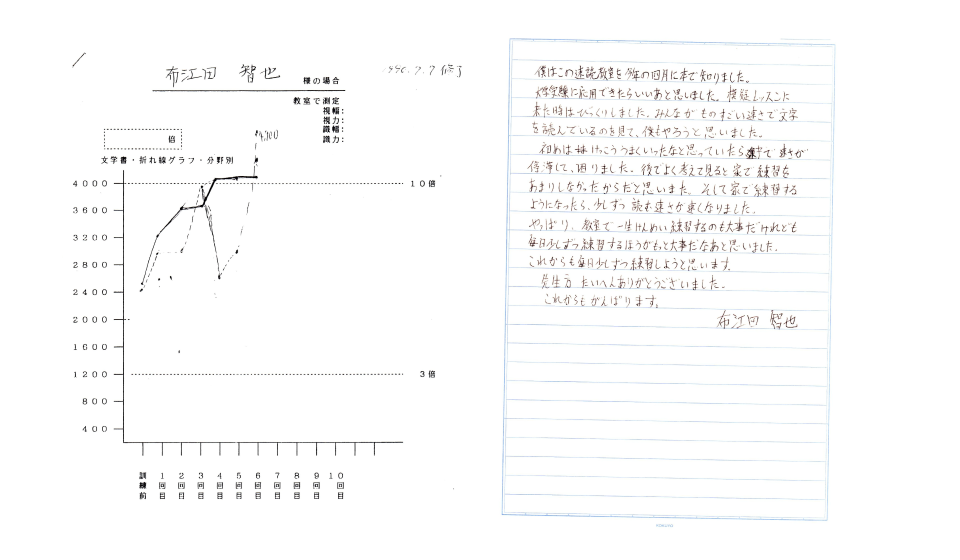 布江田 智也 様の場合
1996.7.7 修了
教室で測定
視幅:
視力:
識幅:
識力:
倍
文字書・折れ線グラフ・分野別
4700
4000
10倍
3600
3200
2800
2400
2000
1600
1200
3倍
800
400
訓練前 1回目 2回目 3回目 4回目 5回目 6回目 7回目 8回目 9回目 10回目
僕はこの速読教室を今年の四月に本で知りました。
大学受験に応用できたらいいなあと思いました。模擬レッスンに
来た時はびっくりしました。みんながものすごい速さで文字
を読んでいるのを見て、僕もやろうと思いました。
初めはけっこううまくいったなと思っていたら途中で速さが
停滞して、困りました。後でよく考えて見ると家で練習を
あまりしなかったからだと思いました。そして家で練習する
ようになったら、少しずつ読む速さが速くなりました。
やっぱり、教室で一生けんめい練習するのも大事だけれども
毎日少しずつ練習するほうがもっと大事だなあと思いました。
これからも毎日少しずつ練習しようと思います。
先生方たいへんありがとうございました。
これからもがんばります。
布江田 智也